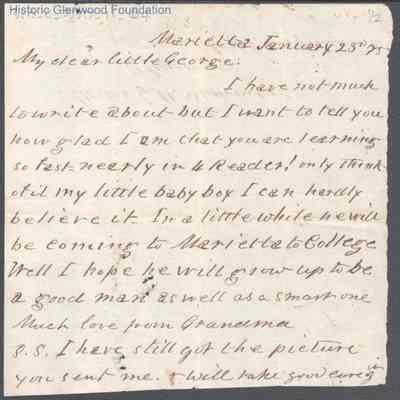 Historic Glenwood Foundation
12
Marietta January 23rd 75
My dear little George.
I have not much
to write about but I want to tell you
how glad I am that you are learning
so fast. nearly in 4 Reader! only think
of it my little baby boy I can hardly
believe it. In a little while he will
be coming to Marietta to College
Well I hope he will grow up to be
a good man as well as a smart one
Much love from Grandma
P.S. I have still got the picture
you sent me. & will take good care of it